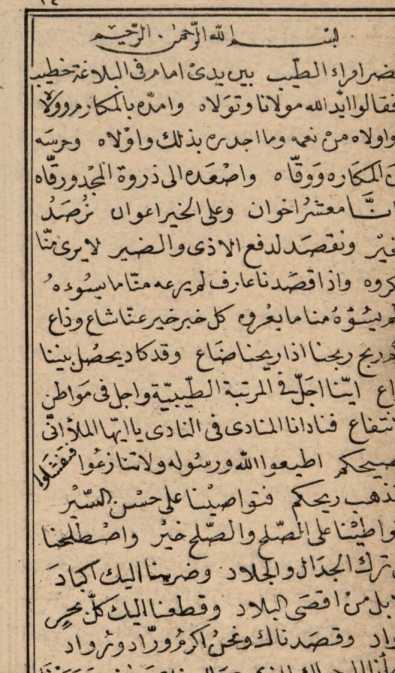 ١٤
بسم الله الرحمن الرحيم
حضر امراء الطيب بين يدى امام فى البلاغة خطيب
فقالوا ايد الله مولانا وتولاه وامده بالمكارم ووالا
واولاه من نعمه وما اجدره بذلك واولاه وحرسه
المكاره ووقاه واصعده الى ذروة المجد ورقاه
انا معشر اخوان وعلى الخير اعوان نرصد
ونقصد لدفع الاذى والضير لا يرى منا
مكروه واذا قصدنا عارف لم يرعه منا ما يسوءه
لم يسؤه منا ما يعروه كل خبر خير عنا شاع وذاع
ريح ربحنا اذا ريحنا ضاع وقد كاد يحصل بيننا
اينا اجل فى المرتبة الطيبية واجل فى مواطن
انتفاع فنادانا المنادى فى النادى يا ايها الملأ انى
نصيحكم اطيعوا الله ورسوله ولا تنازعوا فتفشلوا
تذهب ريحكم فتواصينا على حسن السير
واطينا على الصلح والصلح خير واصطلحنا
ترك الجدال والجلاد وضربنا اليك اكباد
ابل من اقصى البلاد وقطعنا اليك كل بحر
واد وقصدناك ونحن اكرم وراد ورواد